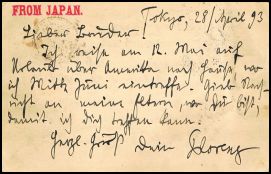 FROM JAPAN.
Tokyo, 28/April 93
Lieber Bruder
Ich reise am 12. Mai auf
Urlaub über Amerika nach Hause, wo
ich Mitte Juni eintreffe. Gieb
nicht an meine Eltern, wo Du bist,
damit ich Dich treffen kann.
Herzl. Gruß Dein Florenz